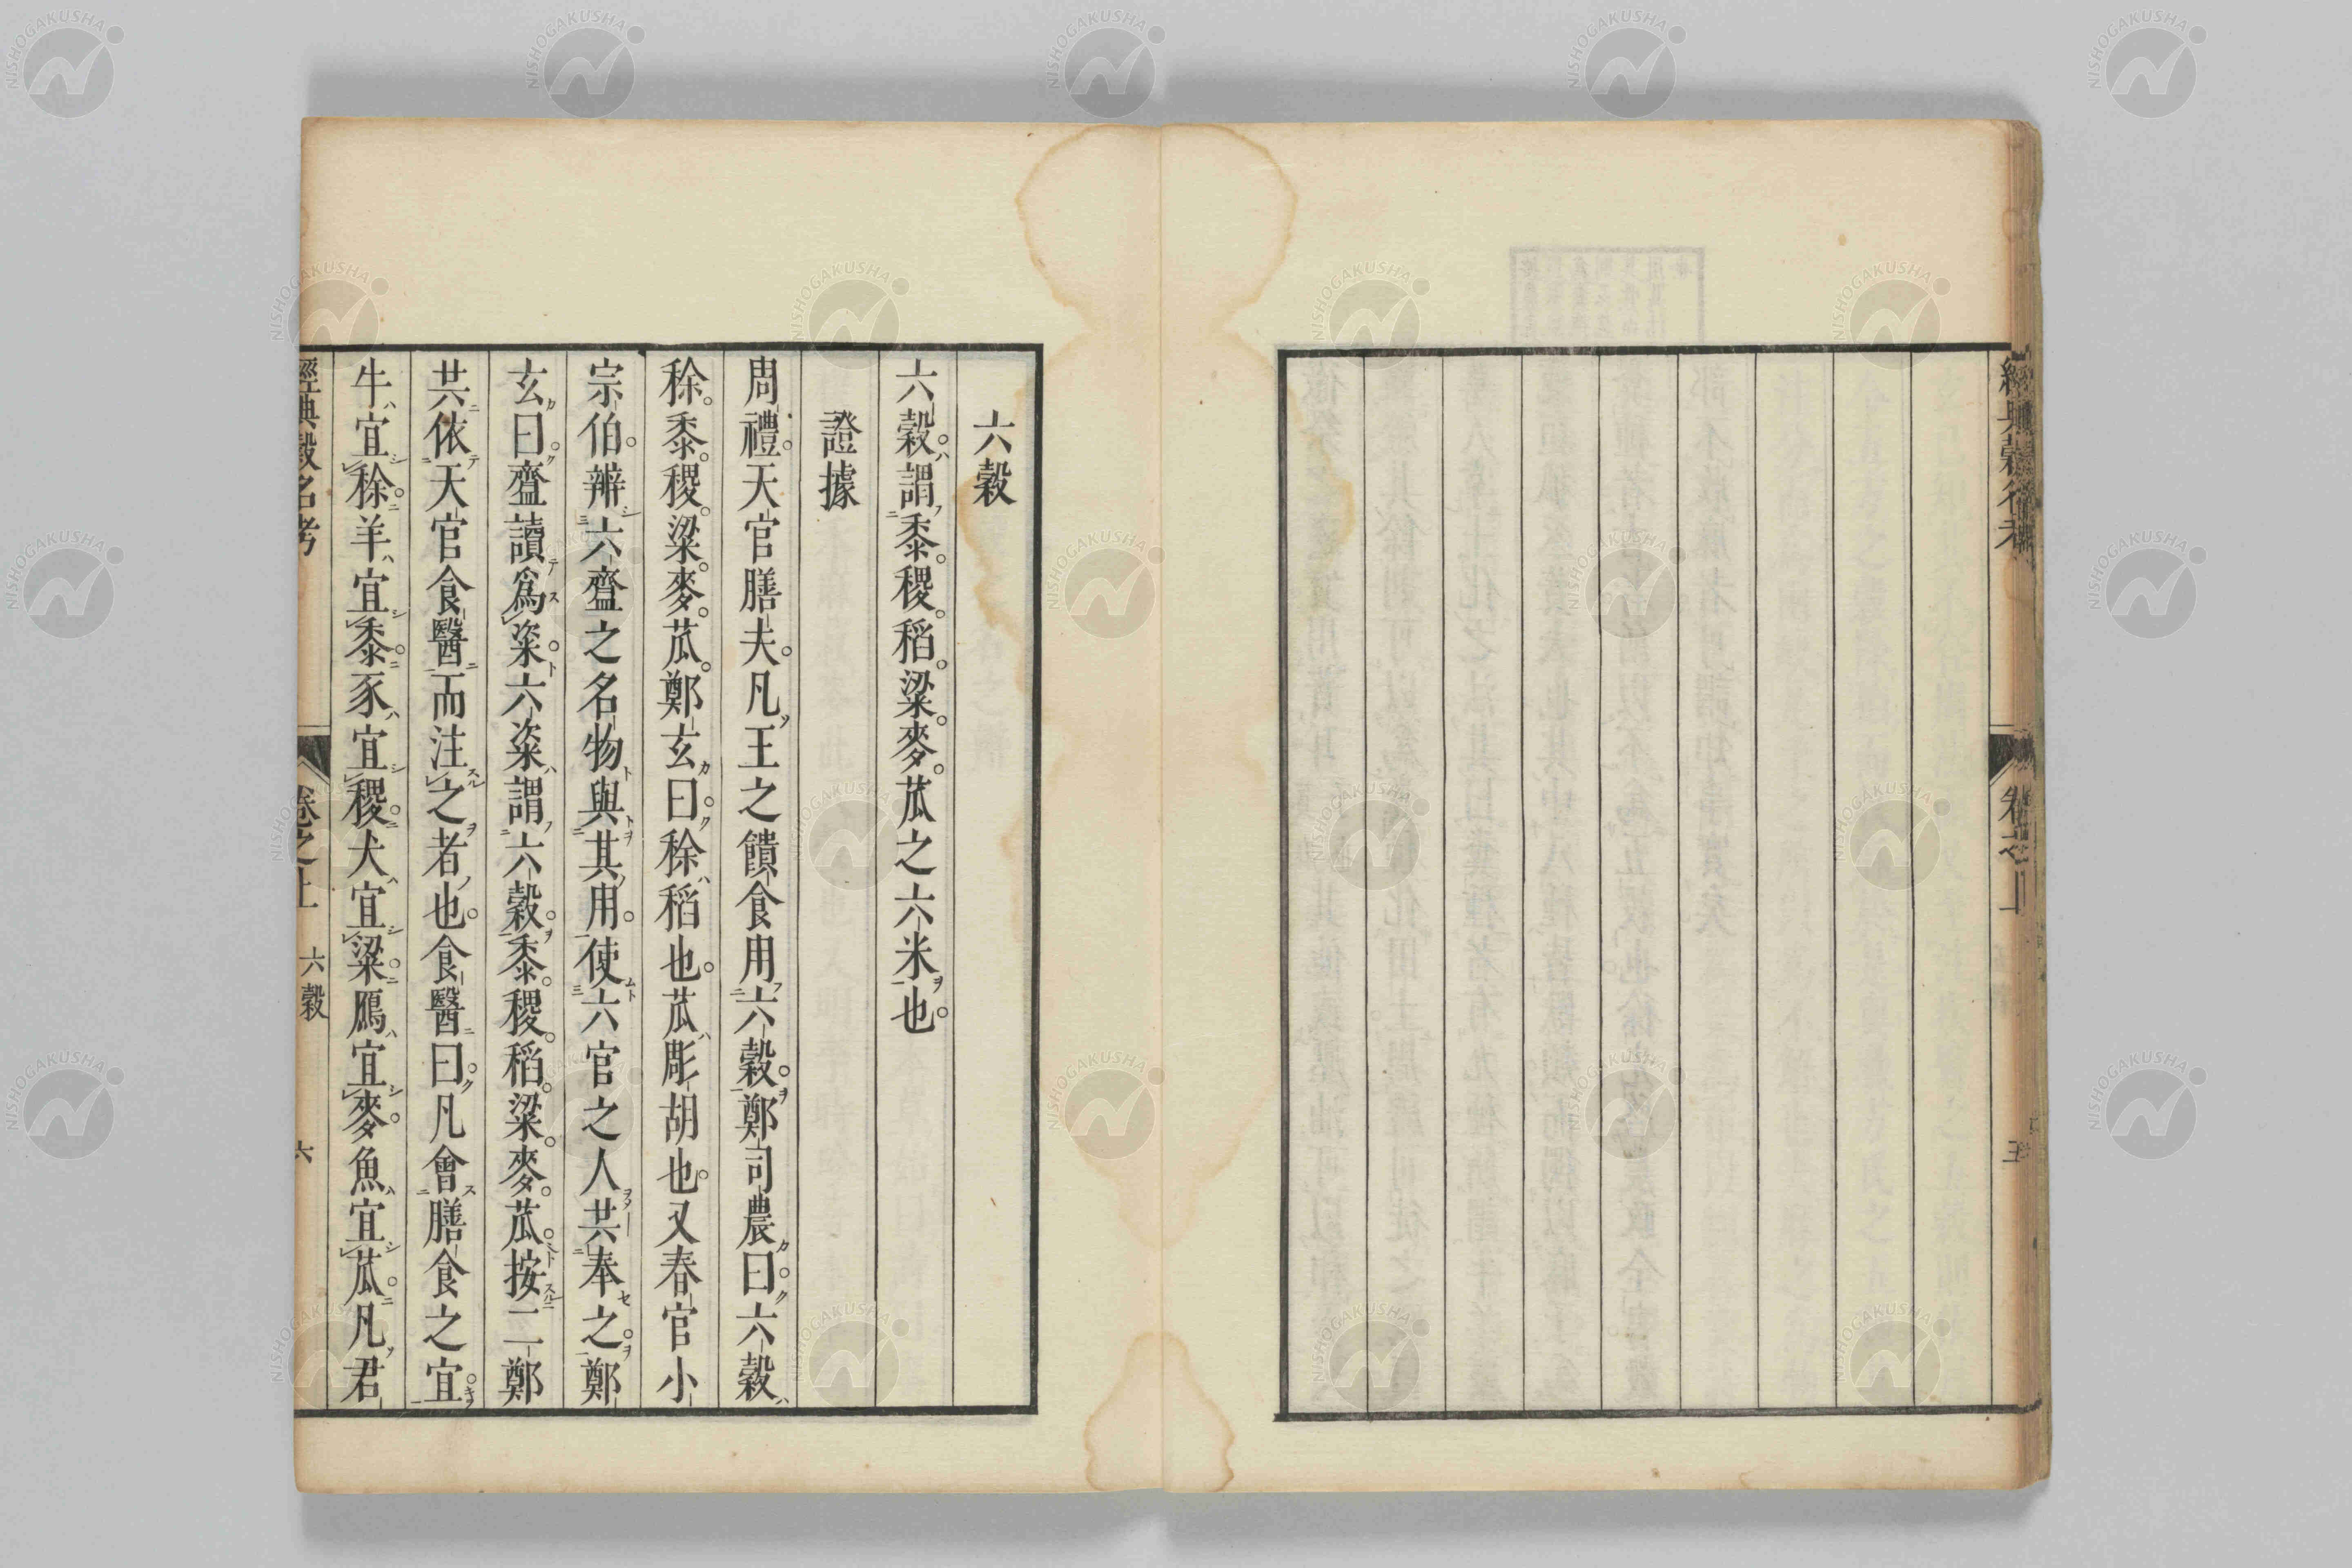 經典穀名考
卷之上
五
六穀
六穀謂黍稷稻粱麥苽之六米也
證據
周禮天官膳夫凡王之饋食用六穀鄭司農曰六穀
稌黍稷粱麥苽鄭玄曰稌稻也苽彫胡也又春官小
宗伯辨六齍之名物與其用使六官之人共奉之鄭
玄曰齍讀爲粢六粢謂六穀黍稷稻粱麥苽按二鄭
共依天官食醫而注之者也食醫曰凡會膳食之宜
牛宜稌羊宜黍豕宜稷犬宜粱鴈宜麥魚宜苽凡君
經典穀名考
卷之上
六穀
六
NISHOGAKUSHA